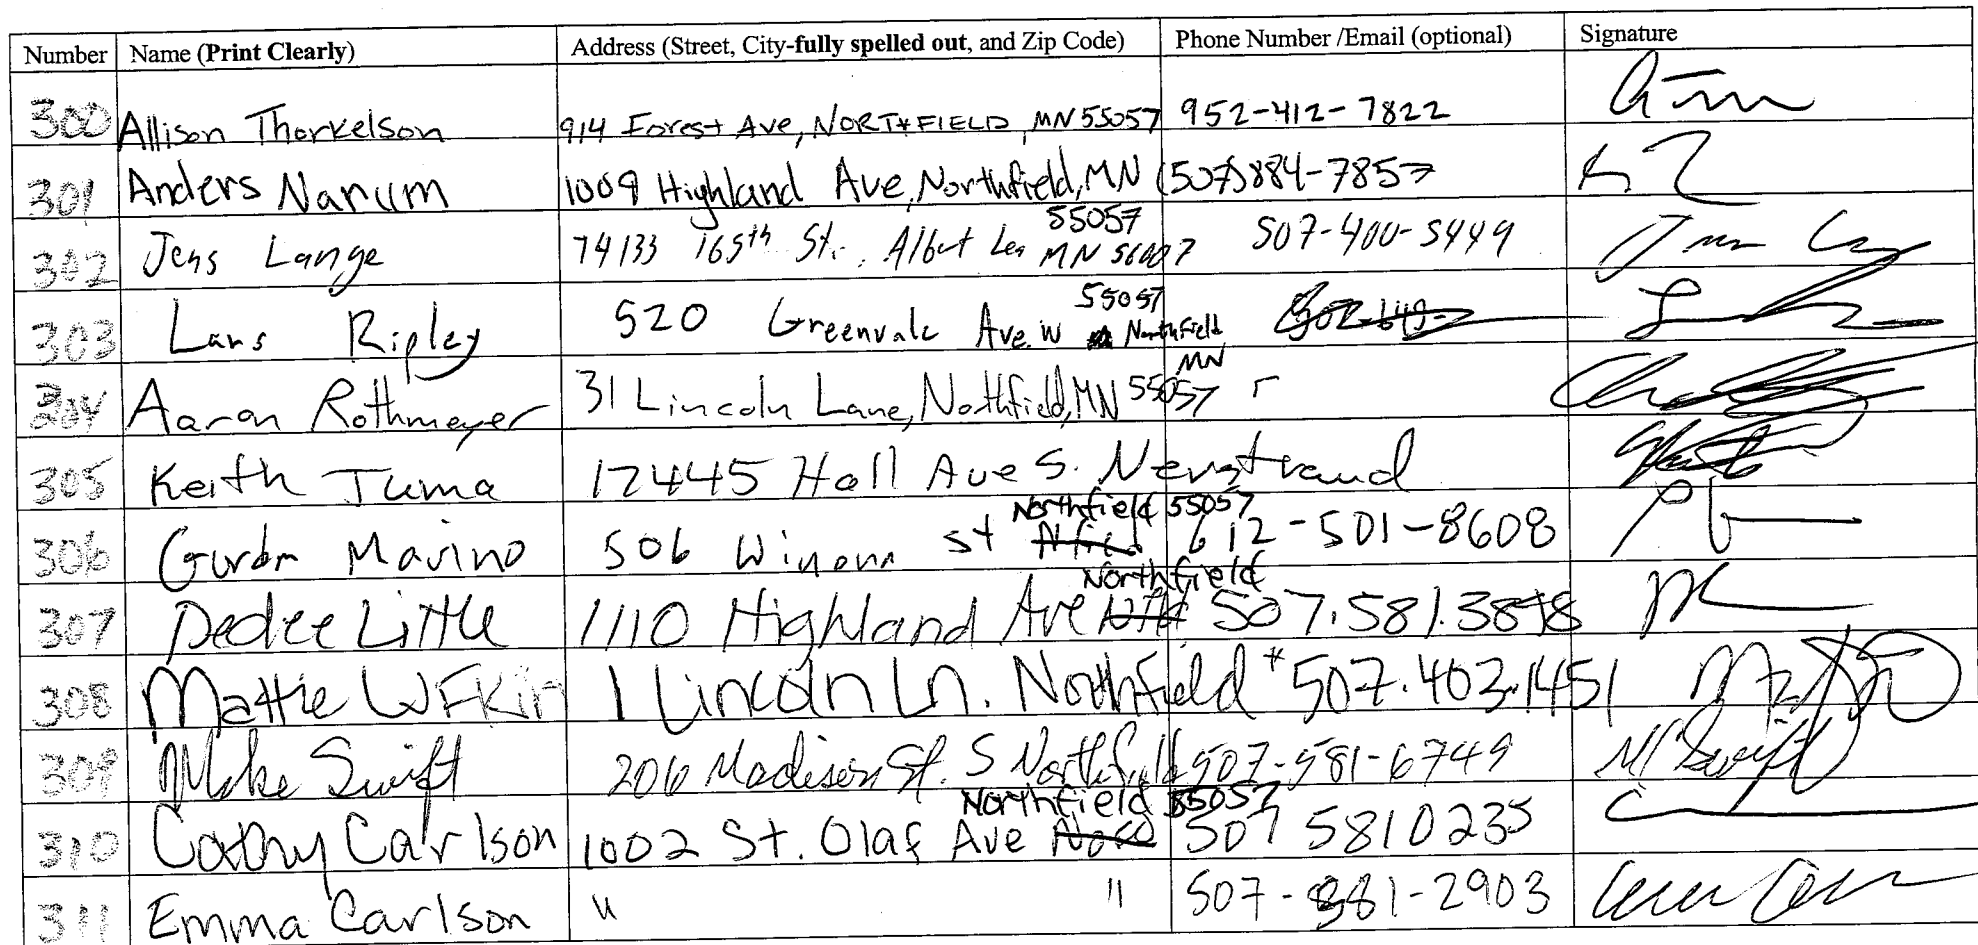 Number Name (Print Clearly) Address (Street, City-fully spelled out, and Zip Code) Phone Number /Email (optional) Signature
300 Allison Thorkelson 914 Forest Ave, NORTHFIELD, MN 55057 952-412-7822
301 Anders Narum 1009 Highland Ave, Northfield, MN 55057 (507)884-7857
302 Jens Lange 74133 165th St. Albert Lea MN 56007 507-400-5449
303 Lars Ripley 520 Greenvale Ave. W Northfield MN 55057
304 Aaron Rothmeyer 31 Lincoln Lane, Northfield, MN 55057
305 Keith Tuma 12445 Hall Ave S. Nerstrand
306 Gordon Marino 506 Winona St Northfield 55057 612-501-8608
307 Dedee Little 1110 Highland Ave Northfield 507.581.3898
308 Mattie 1 Lincoln Ln. Northfield * 507.403.1451
309 Mike Swift 206 Madison St. S Northfield 507-581-6749 M Swift
310 Cathy Carlson 1002 St. Olaf Ave Northfield 55057 507 581 0235
311 Emma Carlson " " 507-881-2903